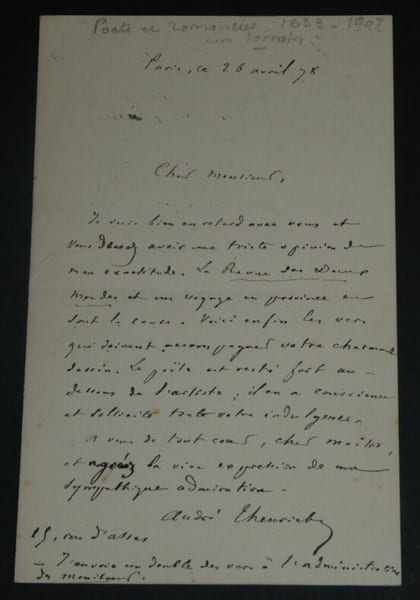 Poète et romancier 1833 - 1907
un lorrain
Paris, ce 26 avril 78
Cher Monsieur,
Je suis bien en retard avec vous et
vous devez avoir une triste opinion de
mon exactitude. La Revue des Deux
Mondes et un voyage en province en
sont la cause. Voici enfin les vers
qui doivent accompagner votre charmant
dessin. Le poëte est resté fort au-
dessous de l'artiste ; il en a conscience
et sollicite toute votre indulgence.
A vous de tout cœur, cher maître,
et agréez la vive expression de ma
sympathique admiration.
André Theuriet
rue d'Assas
J'envoie un double des vers à l'administration
du moniteur.